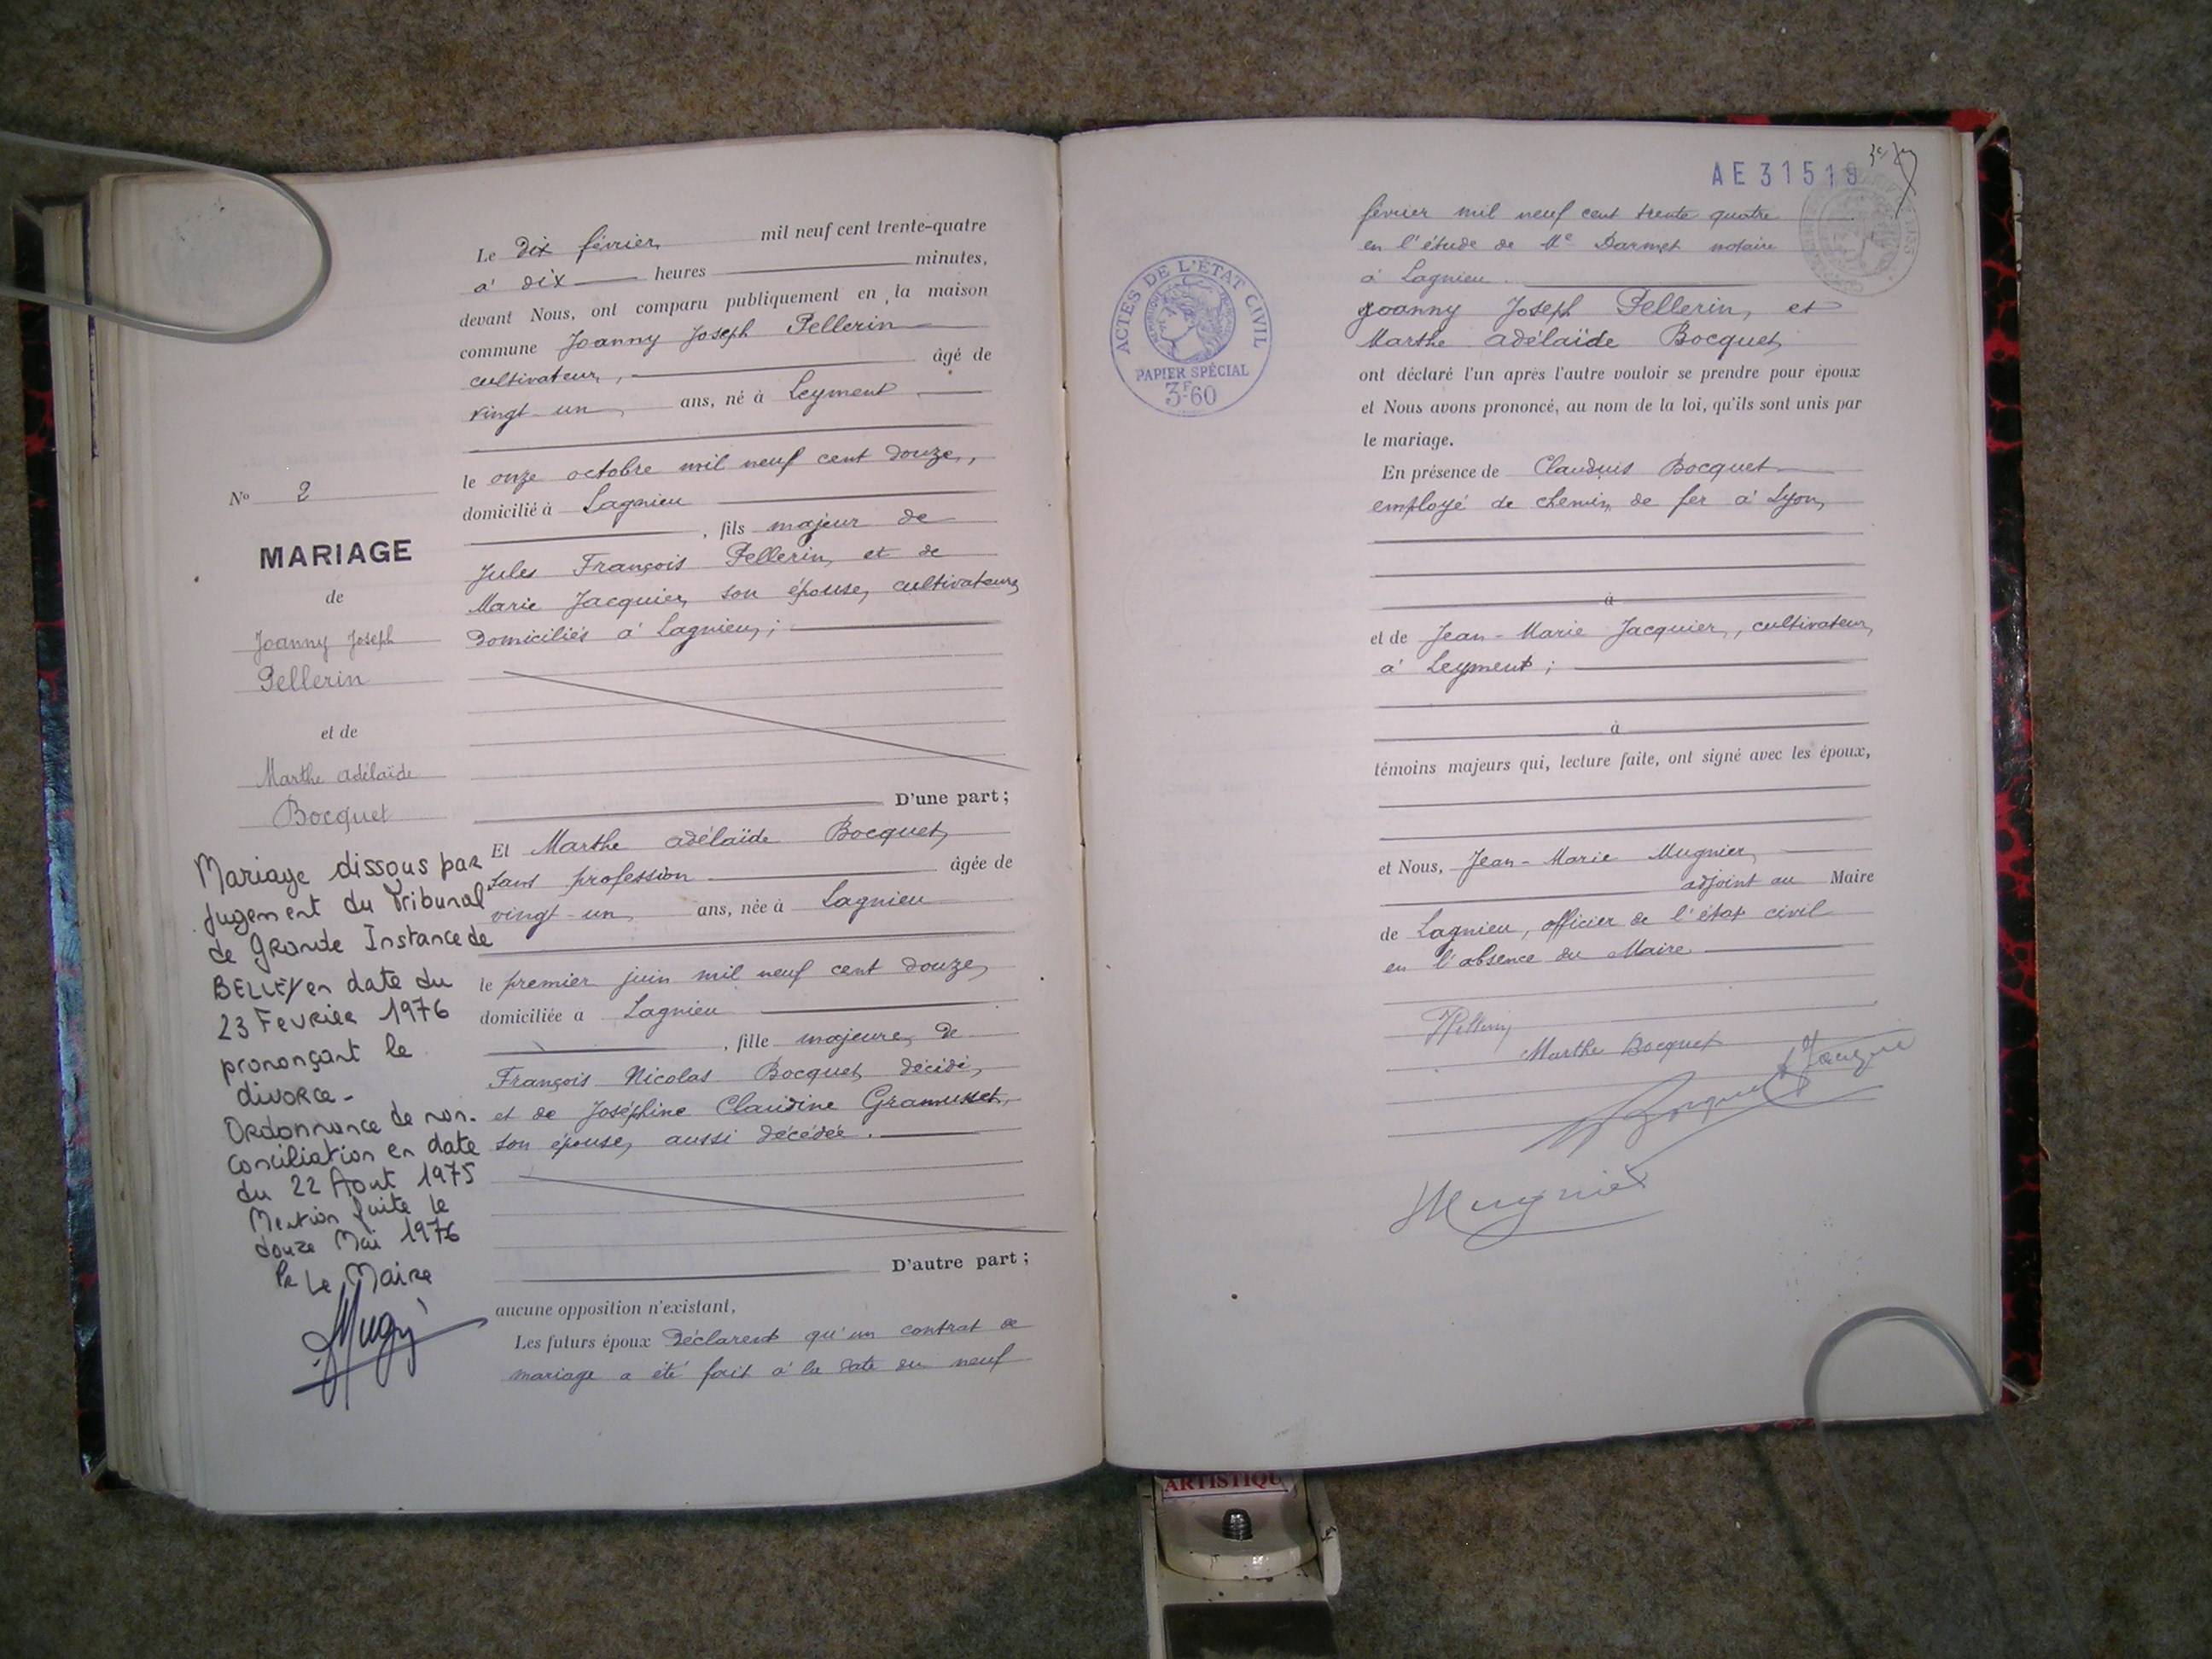 N° 2
MARIAGE
de
Joanny Joseph
Pellerin
et de
Marthe Adélaïde
Bocquet
Mariage dissous par
jugement du Tribunal
de Grande Instance de
BELLEY en date du
23 Fevrier 1976
prononçant le
divorce -
Ordonnance de non-
conciliation en date
du 22 Aout 1975
Mention faite le
douze Mai 1976
Pr Le Maire
Le dix février mil neuf cent trente-quatre
à dix heures minutes,
devant Nous, ont comparu publiquement en la maison
commune Joanny Joseph Pellerin
cultivateur, âgé de
vingt-un ans, né à Leyment
le onze octobre mil neuf cent douze,
domicilié à Lagnieu
, fils majeur de
Jules François Pellerin, et de
Marie Jacquier, son épouse, cultivateurs
domiciliés à Lagnieu;
D'une part;
Et Marthe Adélaïde Bocquet,
sans profession âgée de
vingt-un ans, née à Lagnieu
le premier juin mil neuf cent douze,
domiciliée à Lagnieu
, fille majeure de
François Nicolas Bocquet, décédé,
et de Joséphine Claudine Gramusset,
son épouse, aussi décédée.
D'autre part;
aucune opposition n'existant,
Les futurs époux déclarent qu'un contrat de
mariage a été fait à la date du neuf
AE 31519
ACTES DE L'ÉTAT CIVIL
PAPIER SPÉCIAL
3F60
février mil neuf cent trente quatre
en l'étude de Me Darmet notaire
à Lagnieu.
Joanny Joseph Pellerin, et
Marthe Adélaïde Bocquet,
ont déclaré l'un après l'autre vouloir se prendre pour époux
et Nous avons prononcé, au nom de la loi, qu'ils sont unis par
le mariage.
En présence de Claudius Bocquet
employé de chemin de fer à Lyon,
à
et de Jean-Marie Jacquier, cultivateur,
à Leyment;
à
témoins majeurs qui, lecture faite, ont signé avec les époux,
et Nous, Jean-Marie Mugnier,
adjoint au Maire
de Lagnieu, officier de l'état civil
en l'absence du Maire
Marthe Bocquet
Mugnier
ARTISTIQU